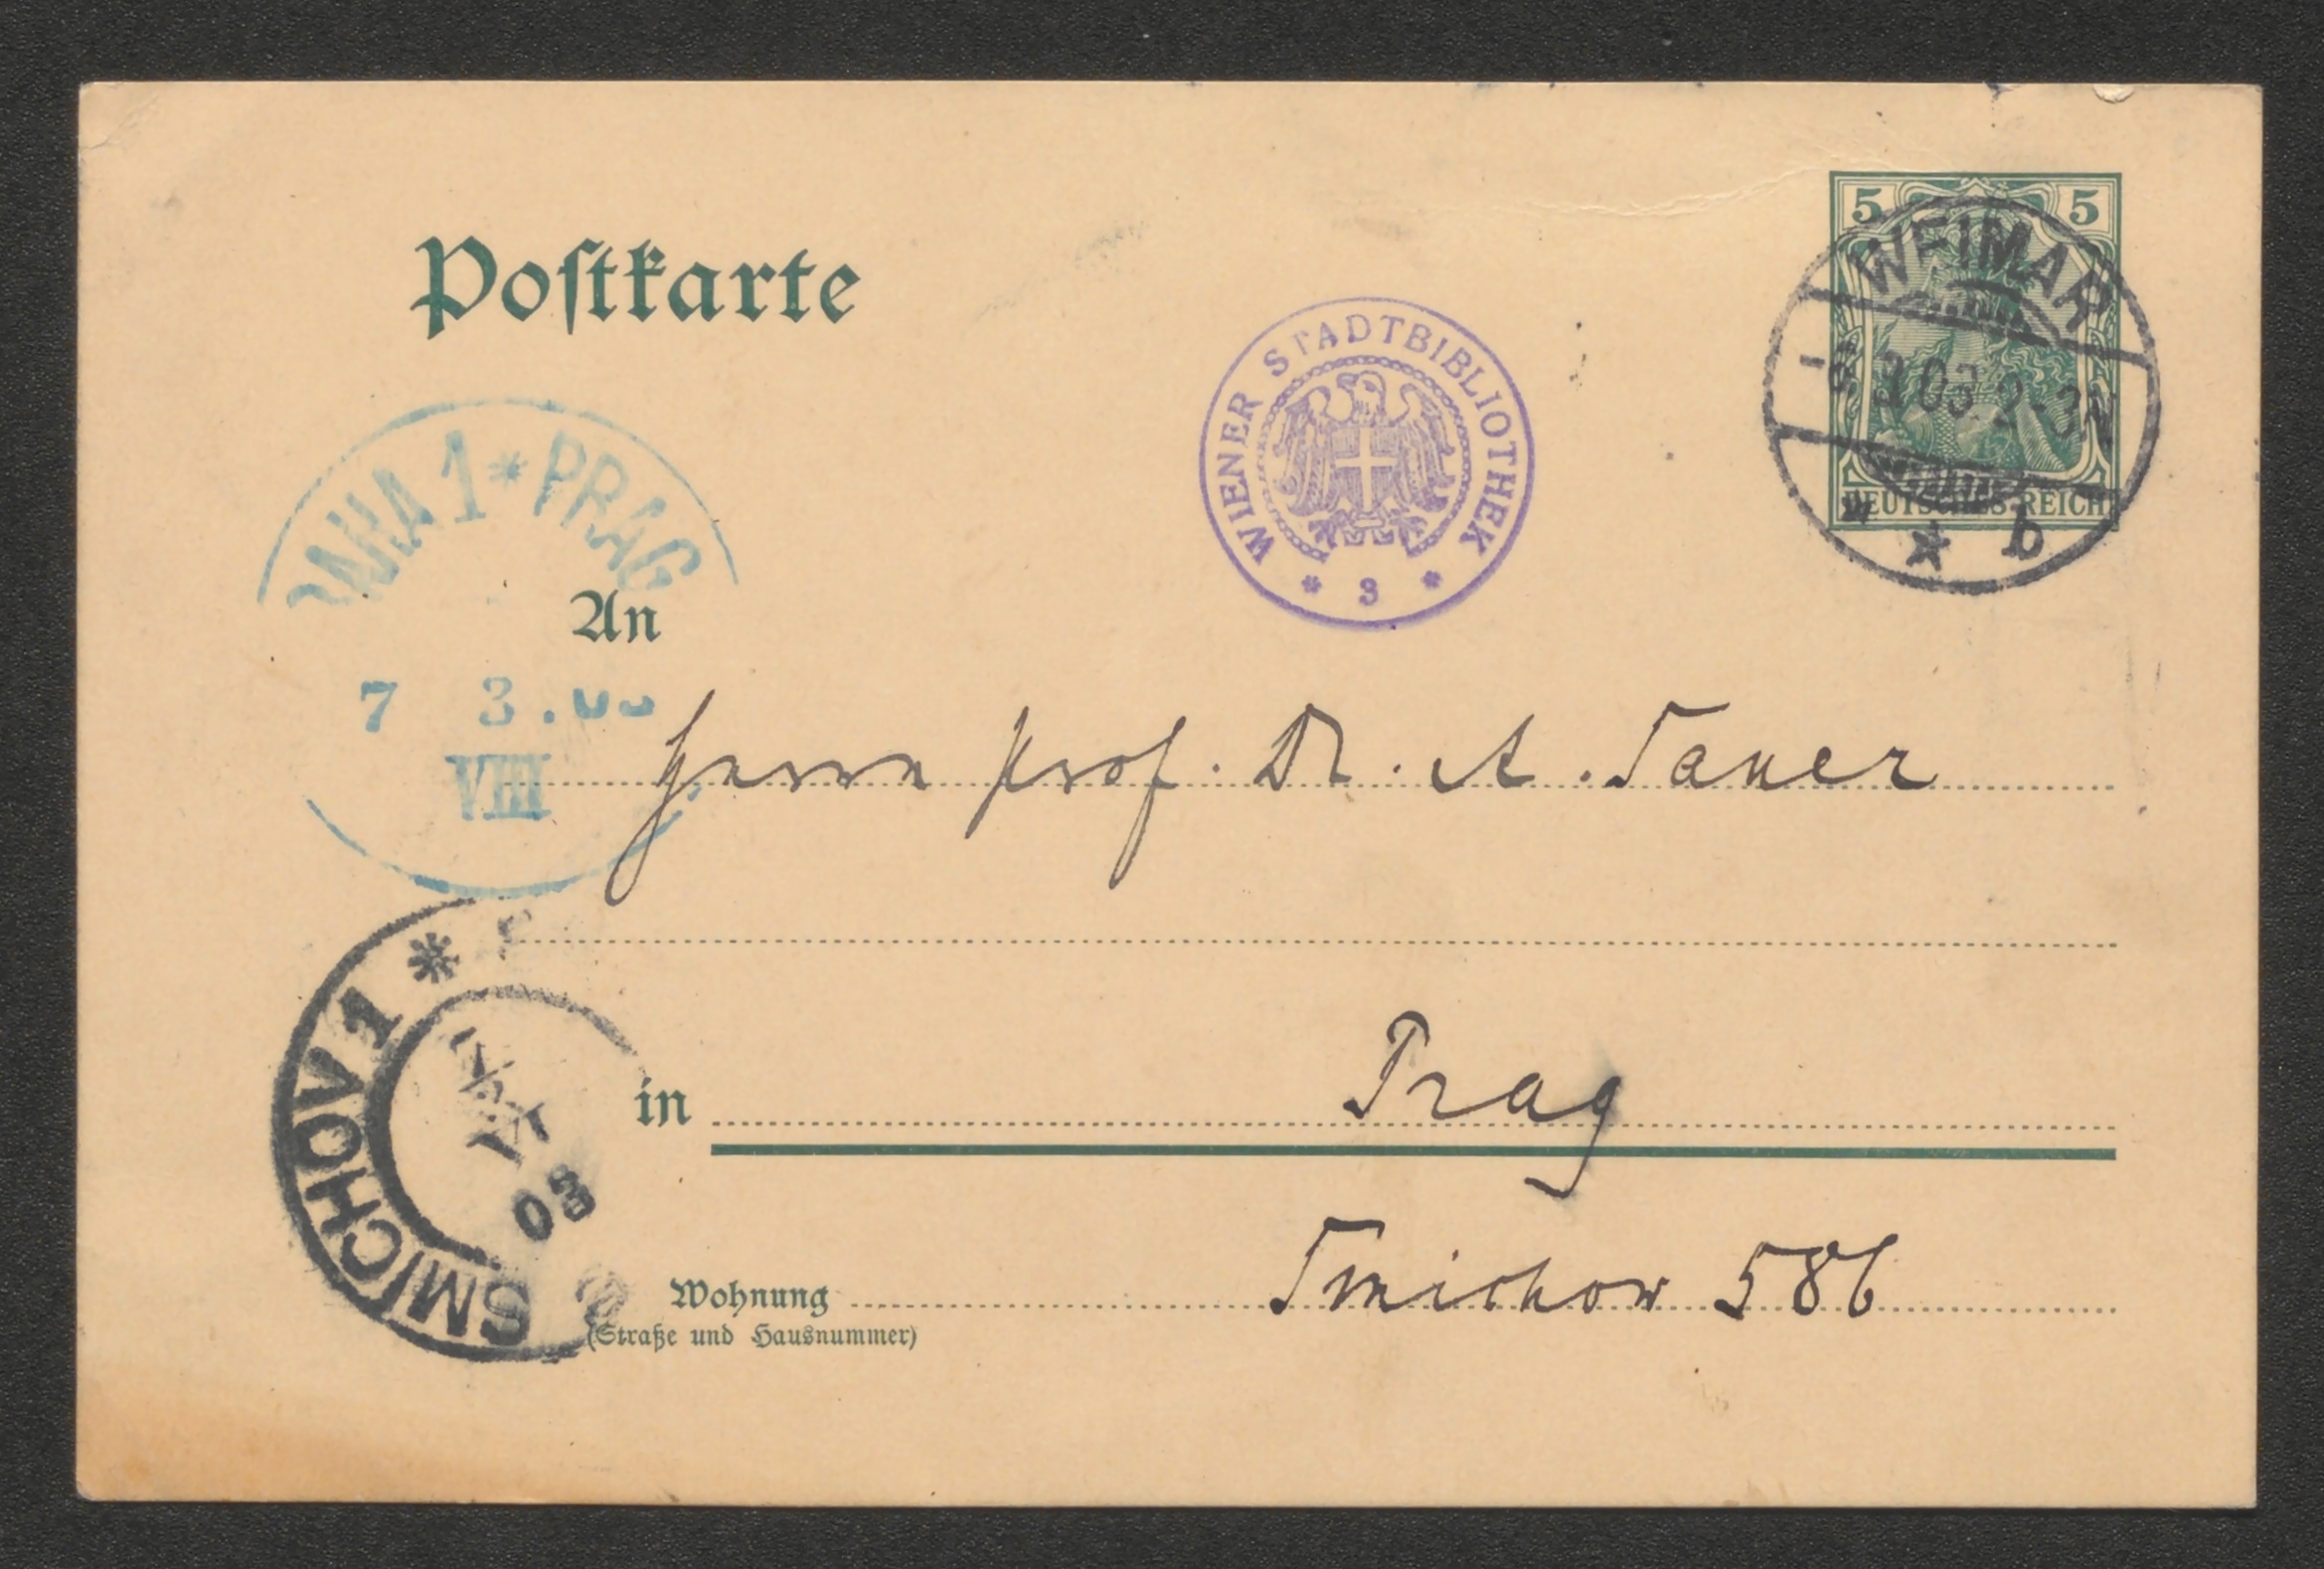 Postkarte
5 5
DEUTSCHES REICH
WEIMAR
3.03. 2-3N
* b
WIENER STADTBIBLIOTHEK
* 3 *
PRAHA 1 * PRAG
7 3.
VIII
An
Herrn Prof. Dr. A. Sauer
SMICHOV 1 *
03
in Prag
Wohnung Smichow 586
(Straße und Hausnummer)